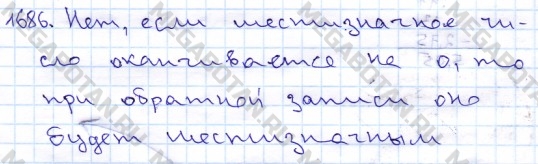 1686. Нет, если шестизначное чи-
сло оканчивается не 0, то
при обратной записи оно
будет шестизначным
MEGABOTAN.RU